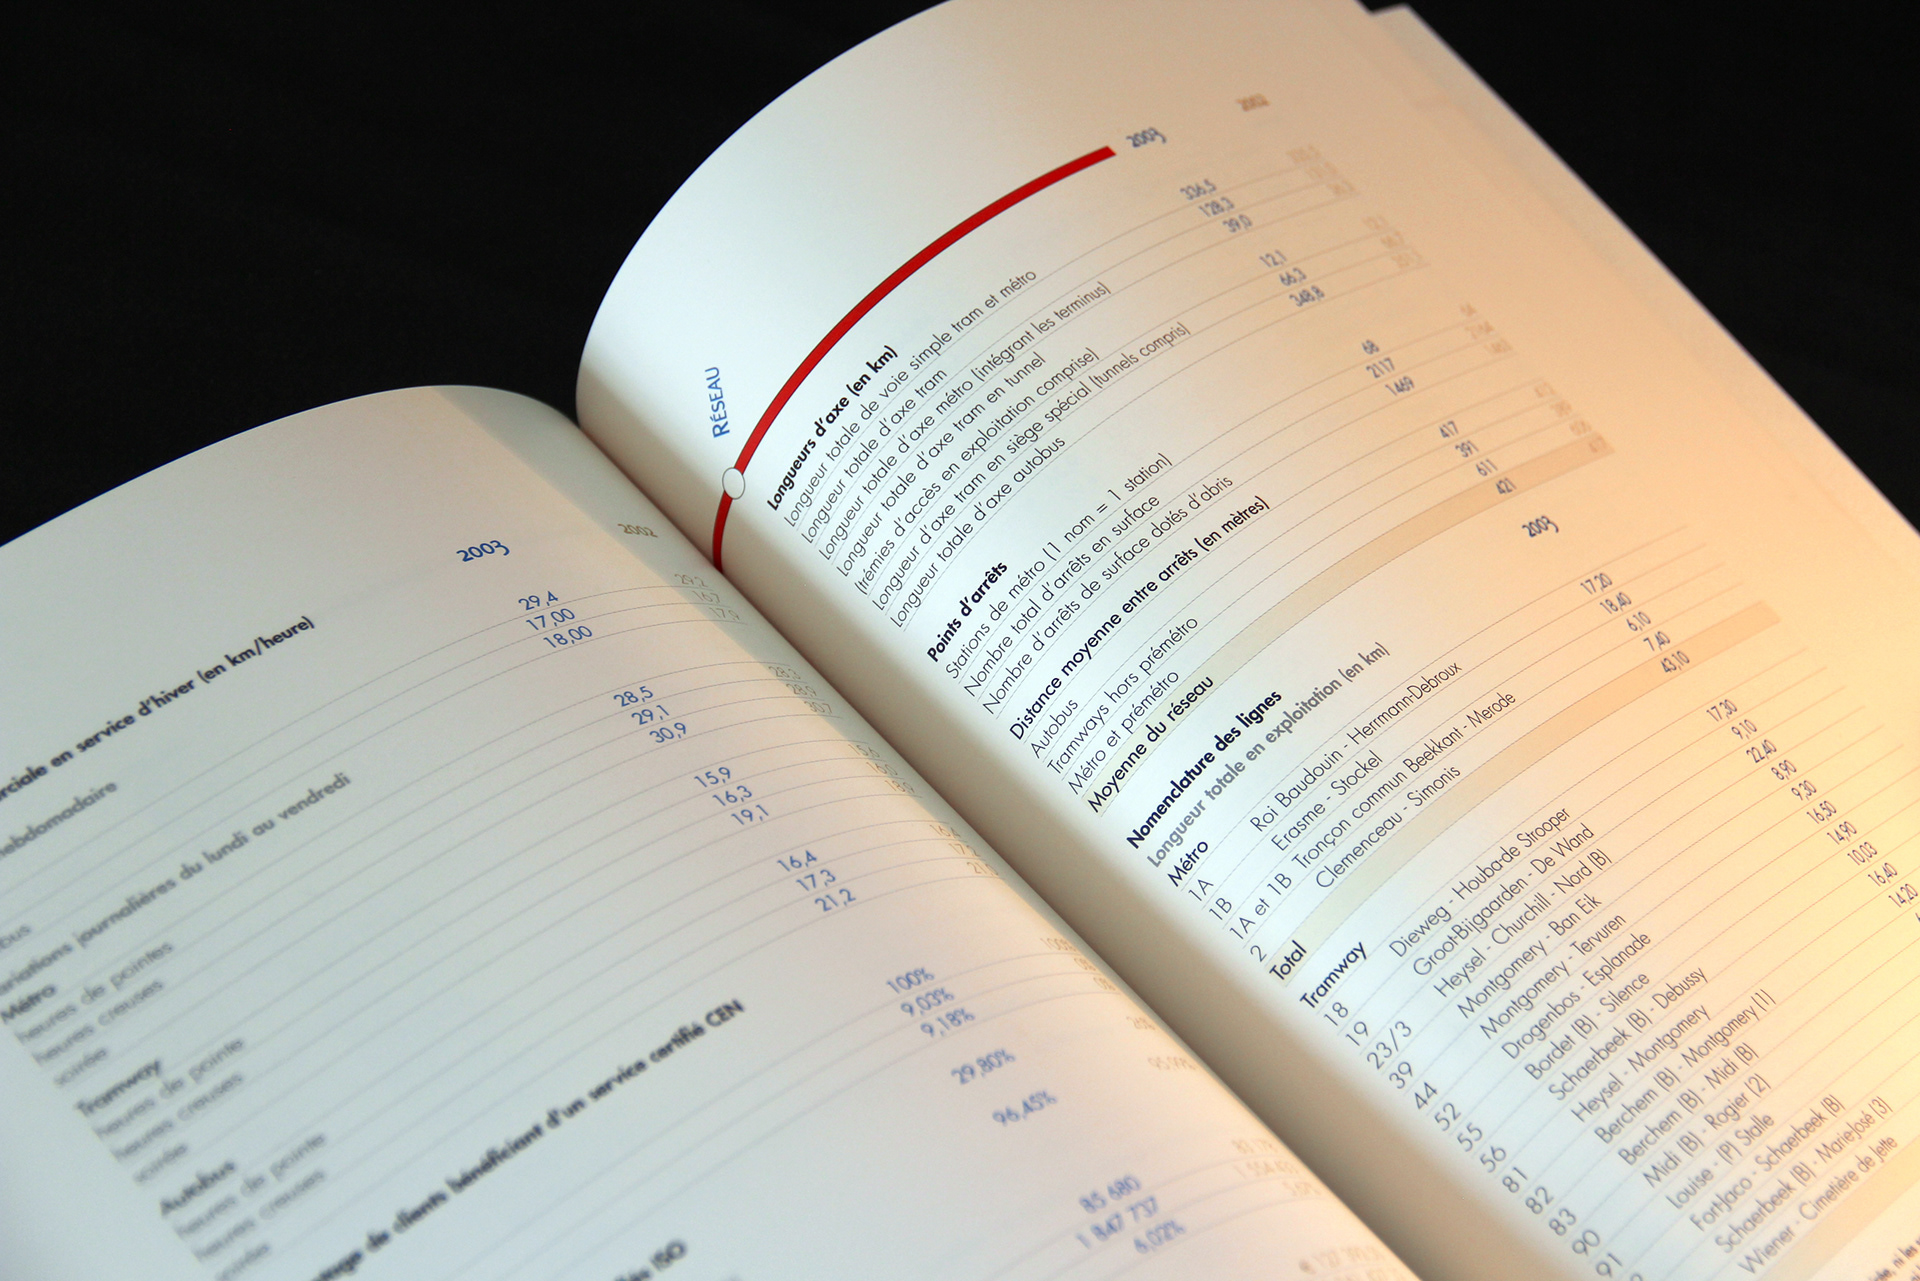 2003 2002
rciale en service d'hiver (en km/heure)
29,4 29,2
17,00 16,7
18,00 17,9
hebdomadaire
bus
ariations journalières du lundi au vendredi
Métro
heures de pointes 28,5 28,3
heures creuses 29,1 28,9
soirée 30,9 30,7
Tramway
heures de pointe 15,9 15,6
heures creuses 16,3 16,0
soirée 19,1 18,9
Autobus
heures de pointe 16,4 16,4
heures creuses 17,3
soirée 21,2
tage de clients bénéficiant d'un service certifié CEN
100% 100%
9,03%
9,18%
29,80%
96,45%
ISO
85 680
1 847 737
6,02%
RÉSEAU
2003 2002
Longueurs d'axe (en km)
Longueur totale de voie simple tram et métro 336,5
Longueur totale d'axe tram 128,3
Longueur totale d'axe métro (intégrant les terminus) 39,0
Longueur totale d'axe tram en tunnel
(trémies d'accès en exploitation comprise) 12,1
Longueur d'axe tram en siège spécial (tunnels compris) 66,3
Longueur totale d'axe autobus 348,8
Points d'arrêts
Stations de métro (1 nom = 1 station) 68
Nombre total d'arrêts en surface 2117
Nombre d'arrêts de surface dotés d'abris 1469
Distance moyenne entre arrêts (en mètres)
Autobus 417
Tramways hors prémétro 391
Métro et prémétro 611
Moyenne du réseau 421
Nomenclature des lignes 2003
Longueur totale en exploitation (en km)
Métro
1A Roi Baudouin - Herrmann-Debroux 17,20
1B Erasme - Stockel 18,40
1A et 1B Tronçon commun Beekkant - Merode 6,10
2 Clemenceau - Simonis 7,40
Total 43,10
Tramway
18 Dieweg - Houba-de Strooper 17,30
19 Groot-Bijgaarden - De Wand 9,10
23/3 Heysel - Churchill - Nord (B) 22,40
39 Montgomery - Ban Eik 8,90
44 Montgomery - Tervuren 9,30
52 Drogenbos - Esplanade 16,50
55 Bordet (B) - Silence 14,90
56 Schaerbeek (B) - Debussy 10,03
81 Heysel - Montgomery 16,40
82 Berchem (B) - Montgomery (1) 14,20
83 Berchem (B) - Midi (B)
90 Midi (B) - Rogier (2)
91 Louise - (P) Stalle
Fort-Jaco - Schaerbeek (B)
Schaerbeek (B) - Marie-José (3)
Wiener - Cimetière de Jette